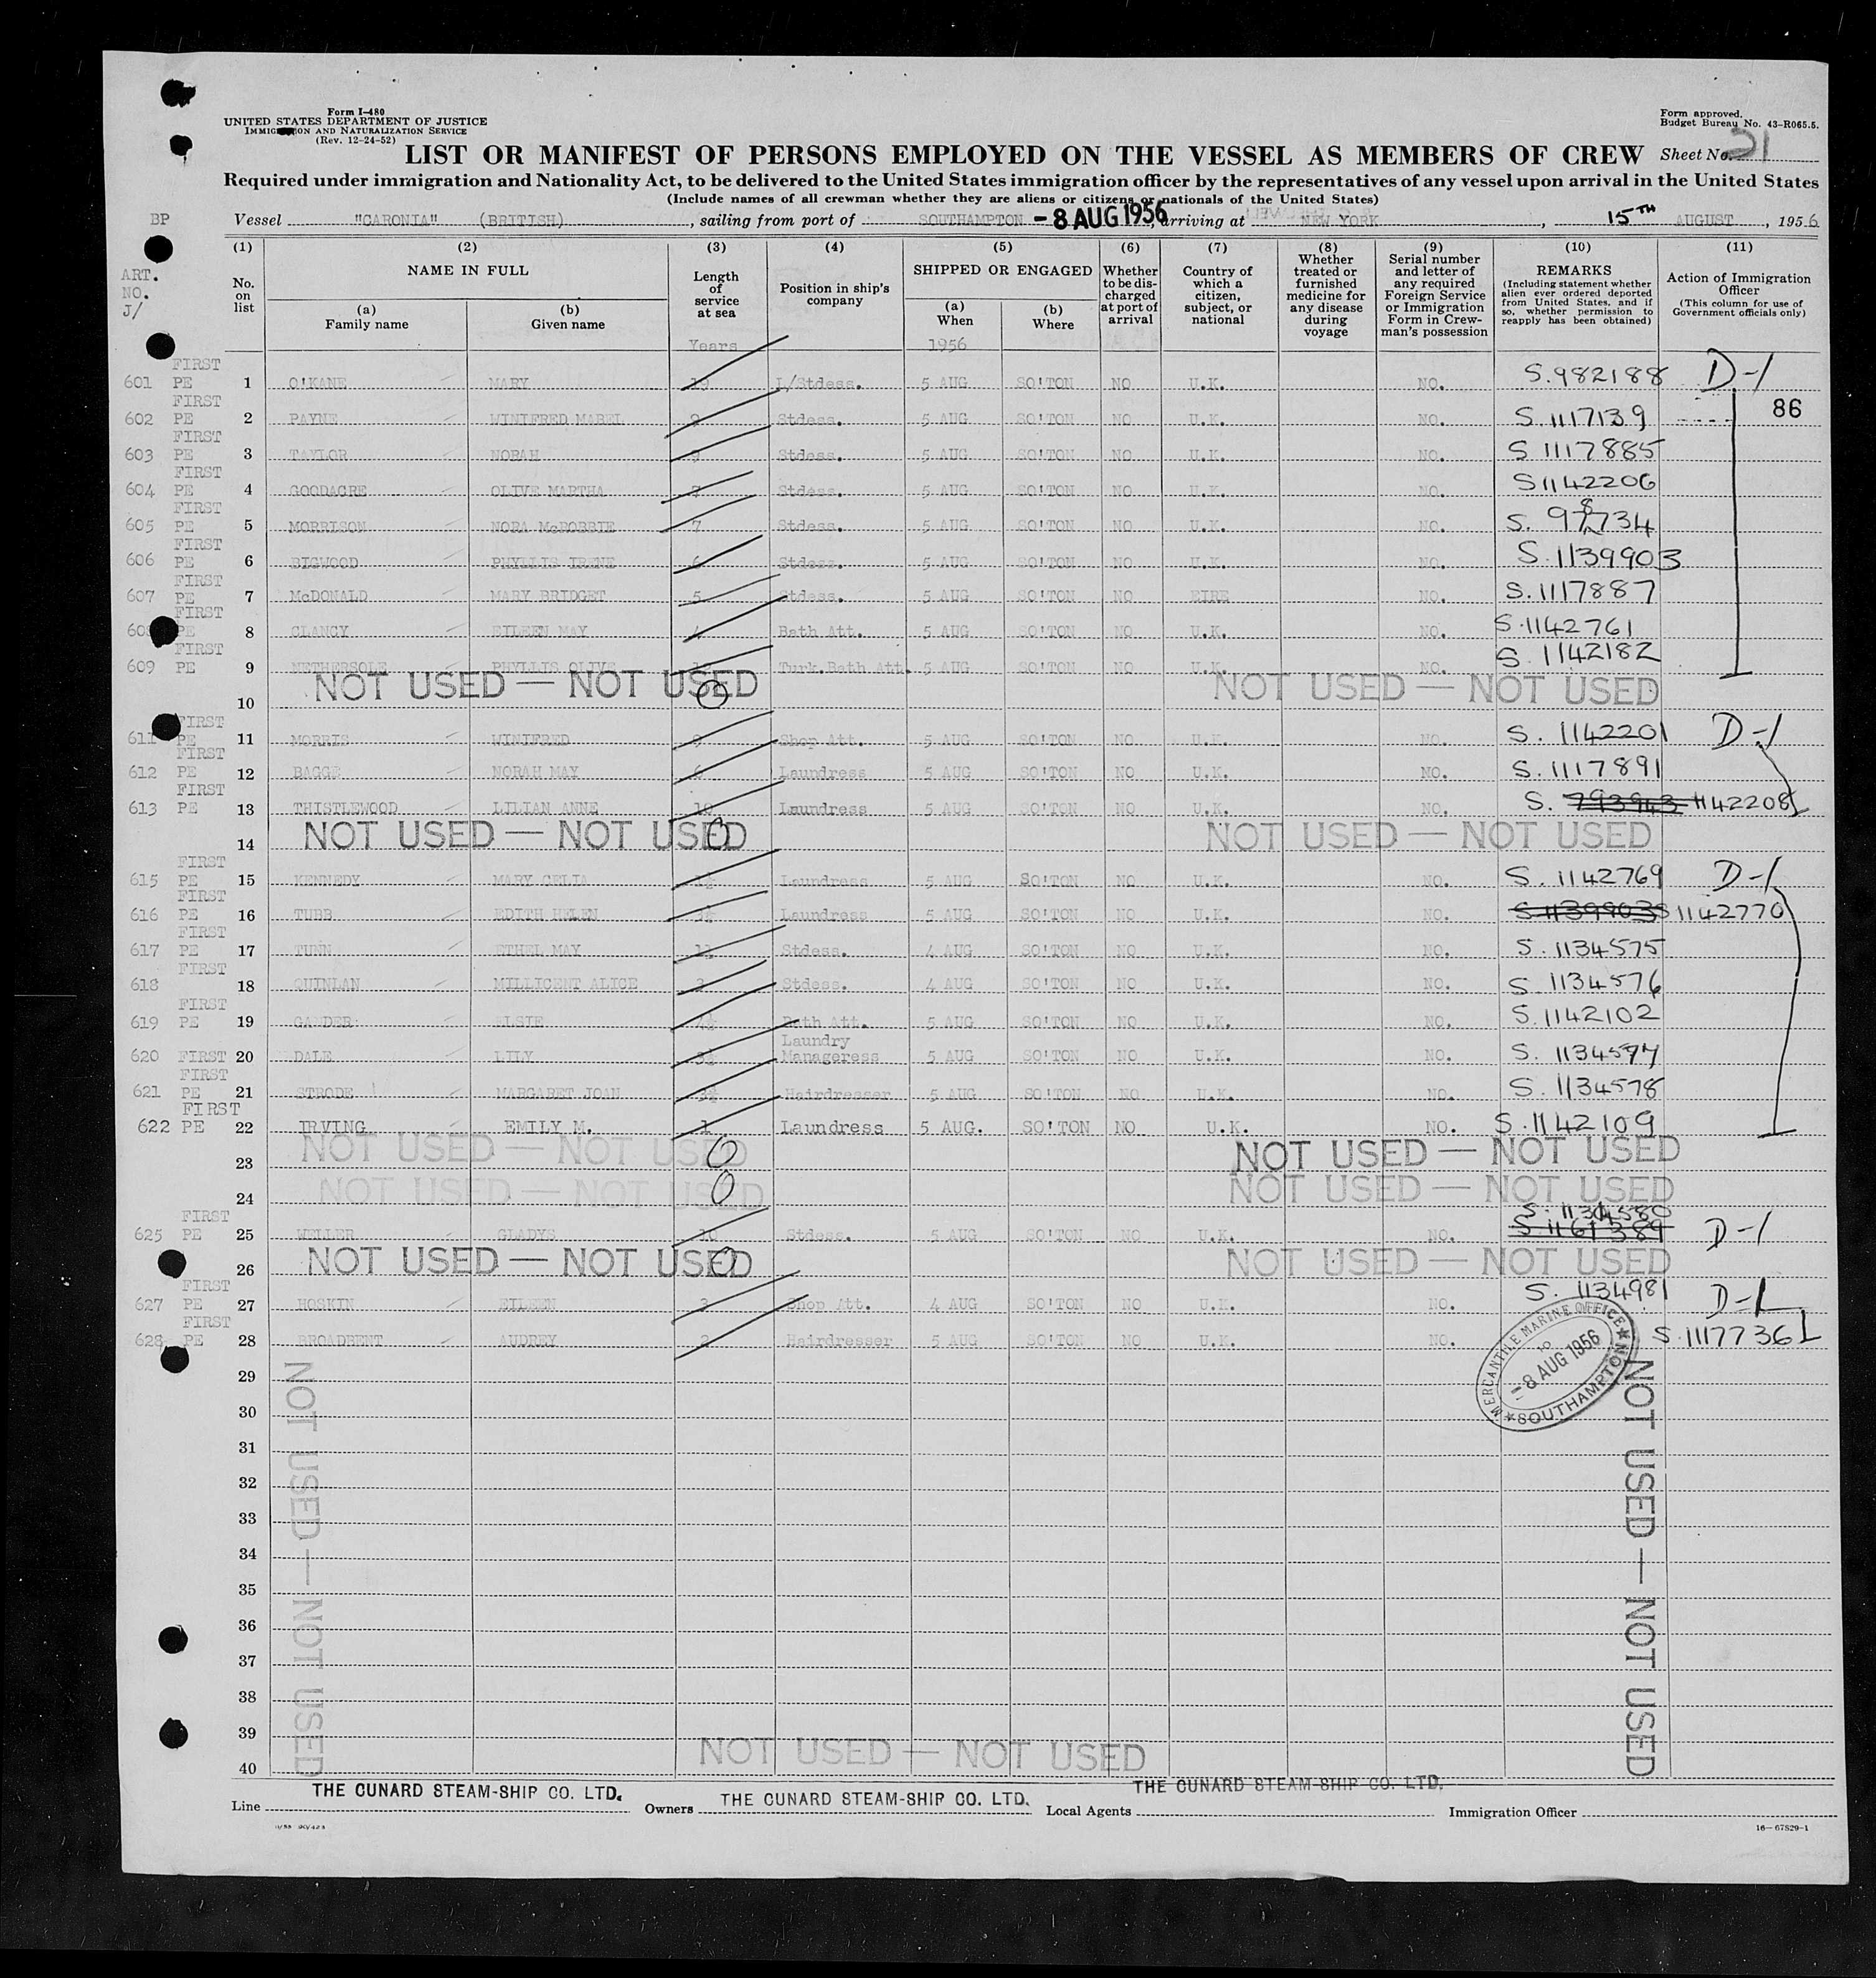 Form I-480
UNITED STATES DEPARTMENT OF JUSTICE
IMMIGRATION AND NATURALIZATION SERVICE
(Rev. 12-24-52)
Form approved.
Budget Bureau No. 43-R065.5.
LIST OR MANIFEST OF PERSONS EMPLOYED ON THE VESSEL AS MEMBERS OF CREW Sheet No. 21
Required under immigration and Nationality Act, to be delivered to the United States immigration officer by the representatives of any vessel upon arrival in the United States
(Include names of all crewman whether they are aliens or citizens or nationals of the United States)
BP Vessel "CARONIA" (BRITISH), sailing from port of SOUTHAMPTON -8 AUG 1956, arriving at NEW YORK, 15TH AUGUST, 1956
ART. NO. J/
(1) No. on list
(2) NAME IN FULL
(a) Family name
(b) Given name
(3) Length of service at sea
(4) Position in ship's company
(5) SHIPPED OR ENGAGED
(a) When
(b) Where
(6) Whether to be discharged at port of arrival
(7) Country of which a citizen, subject, or national
(8) Whether treated or furnished medicine for any disease during voyage
(9) Serial number and letter of any required Foreign Service or Immigration Form in Crewman's possession
(10) REMARKS (Including statement whether alien ever ordered deported from United States, and if so, whether permission to reapply has been obtained)
(11) Action of Immigration Officer (This column for use of Government officials only)
Years 1956
601 FIRST PE 1 O'KANE MARY L/Stdess. 5 AUG SO'TON NO U.K. NO. S.982188 D-1
602 FIRST PE 2 PAYNE WINIFRED MABEL Stdess. 5 AUG SO'TON NO U.K. NO. S.1117139 86
603 FIRST PE 3 TAYLOR NORAH Stdess. 5 AUG SO'TON NO U.K. NO. S 1117885
604 FIRST PE 4 GOODACRE OLIVE MARTHA Stdess. 5 AUG SO'TON NO U.K. NO. S1142206
605 FIRST PE 5 MORRISON NORA McROBBIE 7 Stdess. 5 AUG SO'TON NO U.K. NO.
606 FIRST PE 6 BIGWOOD PHYLLIS IRENE 6 Stdess. 5 AUG SO'TON NO U.K. NO. S.1139903
607 FIRST PE 7 McDONALD MARY BRIDGET 5 Stdess. 5 AUG SO'TON NO EIRE NO. S.1117887
608 FIRST PE 8 CLANCY EILEEN MAY 4 Bath Att. 5 AUG SO'TON NO U.K. NO. S.1142761
609 FIRST PE 9 NETHERSOLE PHYLLIS OLIVE Turk.Bath Att. 5 AUG SO'TON NO U.K. NO. S.1142182
10 NOT USED — NOT USED 0 NOT USED — NOT USED
611 FIRST PE 11 MORRIS WINIFRED Shop Att. 5 AUG SO'TON NO U.K. NO. S.1142201 D-1
612 FIRST PE 12 BAGGE NORAH MAY 6 Laundress 5 AUG SO'TON NO U.K. NO. S.1117891
613 FIRST PE 13 THISTLEWOOD LILIAN ANNE 10 Laundress 5 AUG SO'TON NO U.K. NO. S. 793943 1142208
14 NOT USED — NOT USED 0 NOT USED — NOT USED
615 FIRST PE 15 KENNEDY MARY CELIA Laundress 5 AUG SO'TON NO U.K. NO. S.1142769 D-1
616 FIRST PE 16 TUBB EDITH HELEN Laundress 5 AUG SO'TON NO U.K. NO. S.1139903 S1142770
617 FIRST PE 17 TUNN ETHEL MAY Stdess. 4 AUG SO'TON NO U.K. NO. S.1134575
618 FIRST 18 QUINLAN MILLICENT ALICE Stdess. 4 AUG SO'TON NO U.K. NO. S 1134576
619 FIRST PE 19 ELSIE Bath Att. 5 AUG SO'TON NO U.K. NO. S.1142102
620 FIRST 20 DALE LILY Laundry Manageress 5 AUG SO'TON NO U.K. NO. S. 1134577
621 FIRST PE 21 STRODE MARGARET JOAN Hairdresser 5 AUG SO'TON NO U.K. NO. S. 1134578
622 FIRST PE 22 IRVING EMILY M. 1 Laundress 5 AUG. SO'TON NO U.K. NO. S.1142109
23 NOT USED — NOT USED 0 NOT USED — NOT USED
24 NOT USED — NOT USED 0 NOT USED — NOT USED
625 FIRST PE 25 WELLER GLADYS 10 Stdess. 5 AUG SO'TON NO U.K. NO. S.1134580 S.1161389 D-1
26 NOT USED — NOT USED 0 NOT USED — NOT USED
627 FIRST PE 27 HOSKIN EILEEN Shop Att. 4 AUG SO'TON NO U.K. NO. S. 1134981 D-1
628 FIRST PE 28 BROADBENT AUDREY 2 Hairdresser 5 AUG SO'TON NO U.K. NO. S.1117736
MERCANTILE MARINE OFFICE
-8 AUG 1956
SOUTHAMPTON
29
30
31
32
33
34
35
36
37
38
39
40
NOT USED — NOT USED
NOT USED — NOT USED
NOT USED — NOT USED
Line THE CUNARD STEAM-SHIP CO. LTD. Owners THE CUNARD STEAM-SHIP CO. LTD. Local Agents THE CUNARD STEAM-SHIP CO. LTD. Immigration Officer
16—67829-1